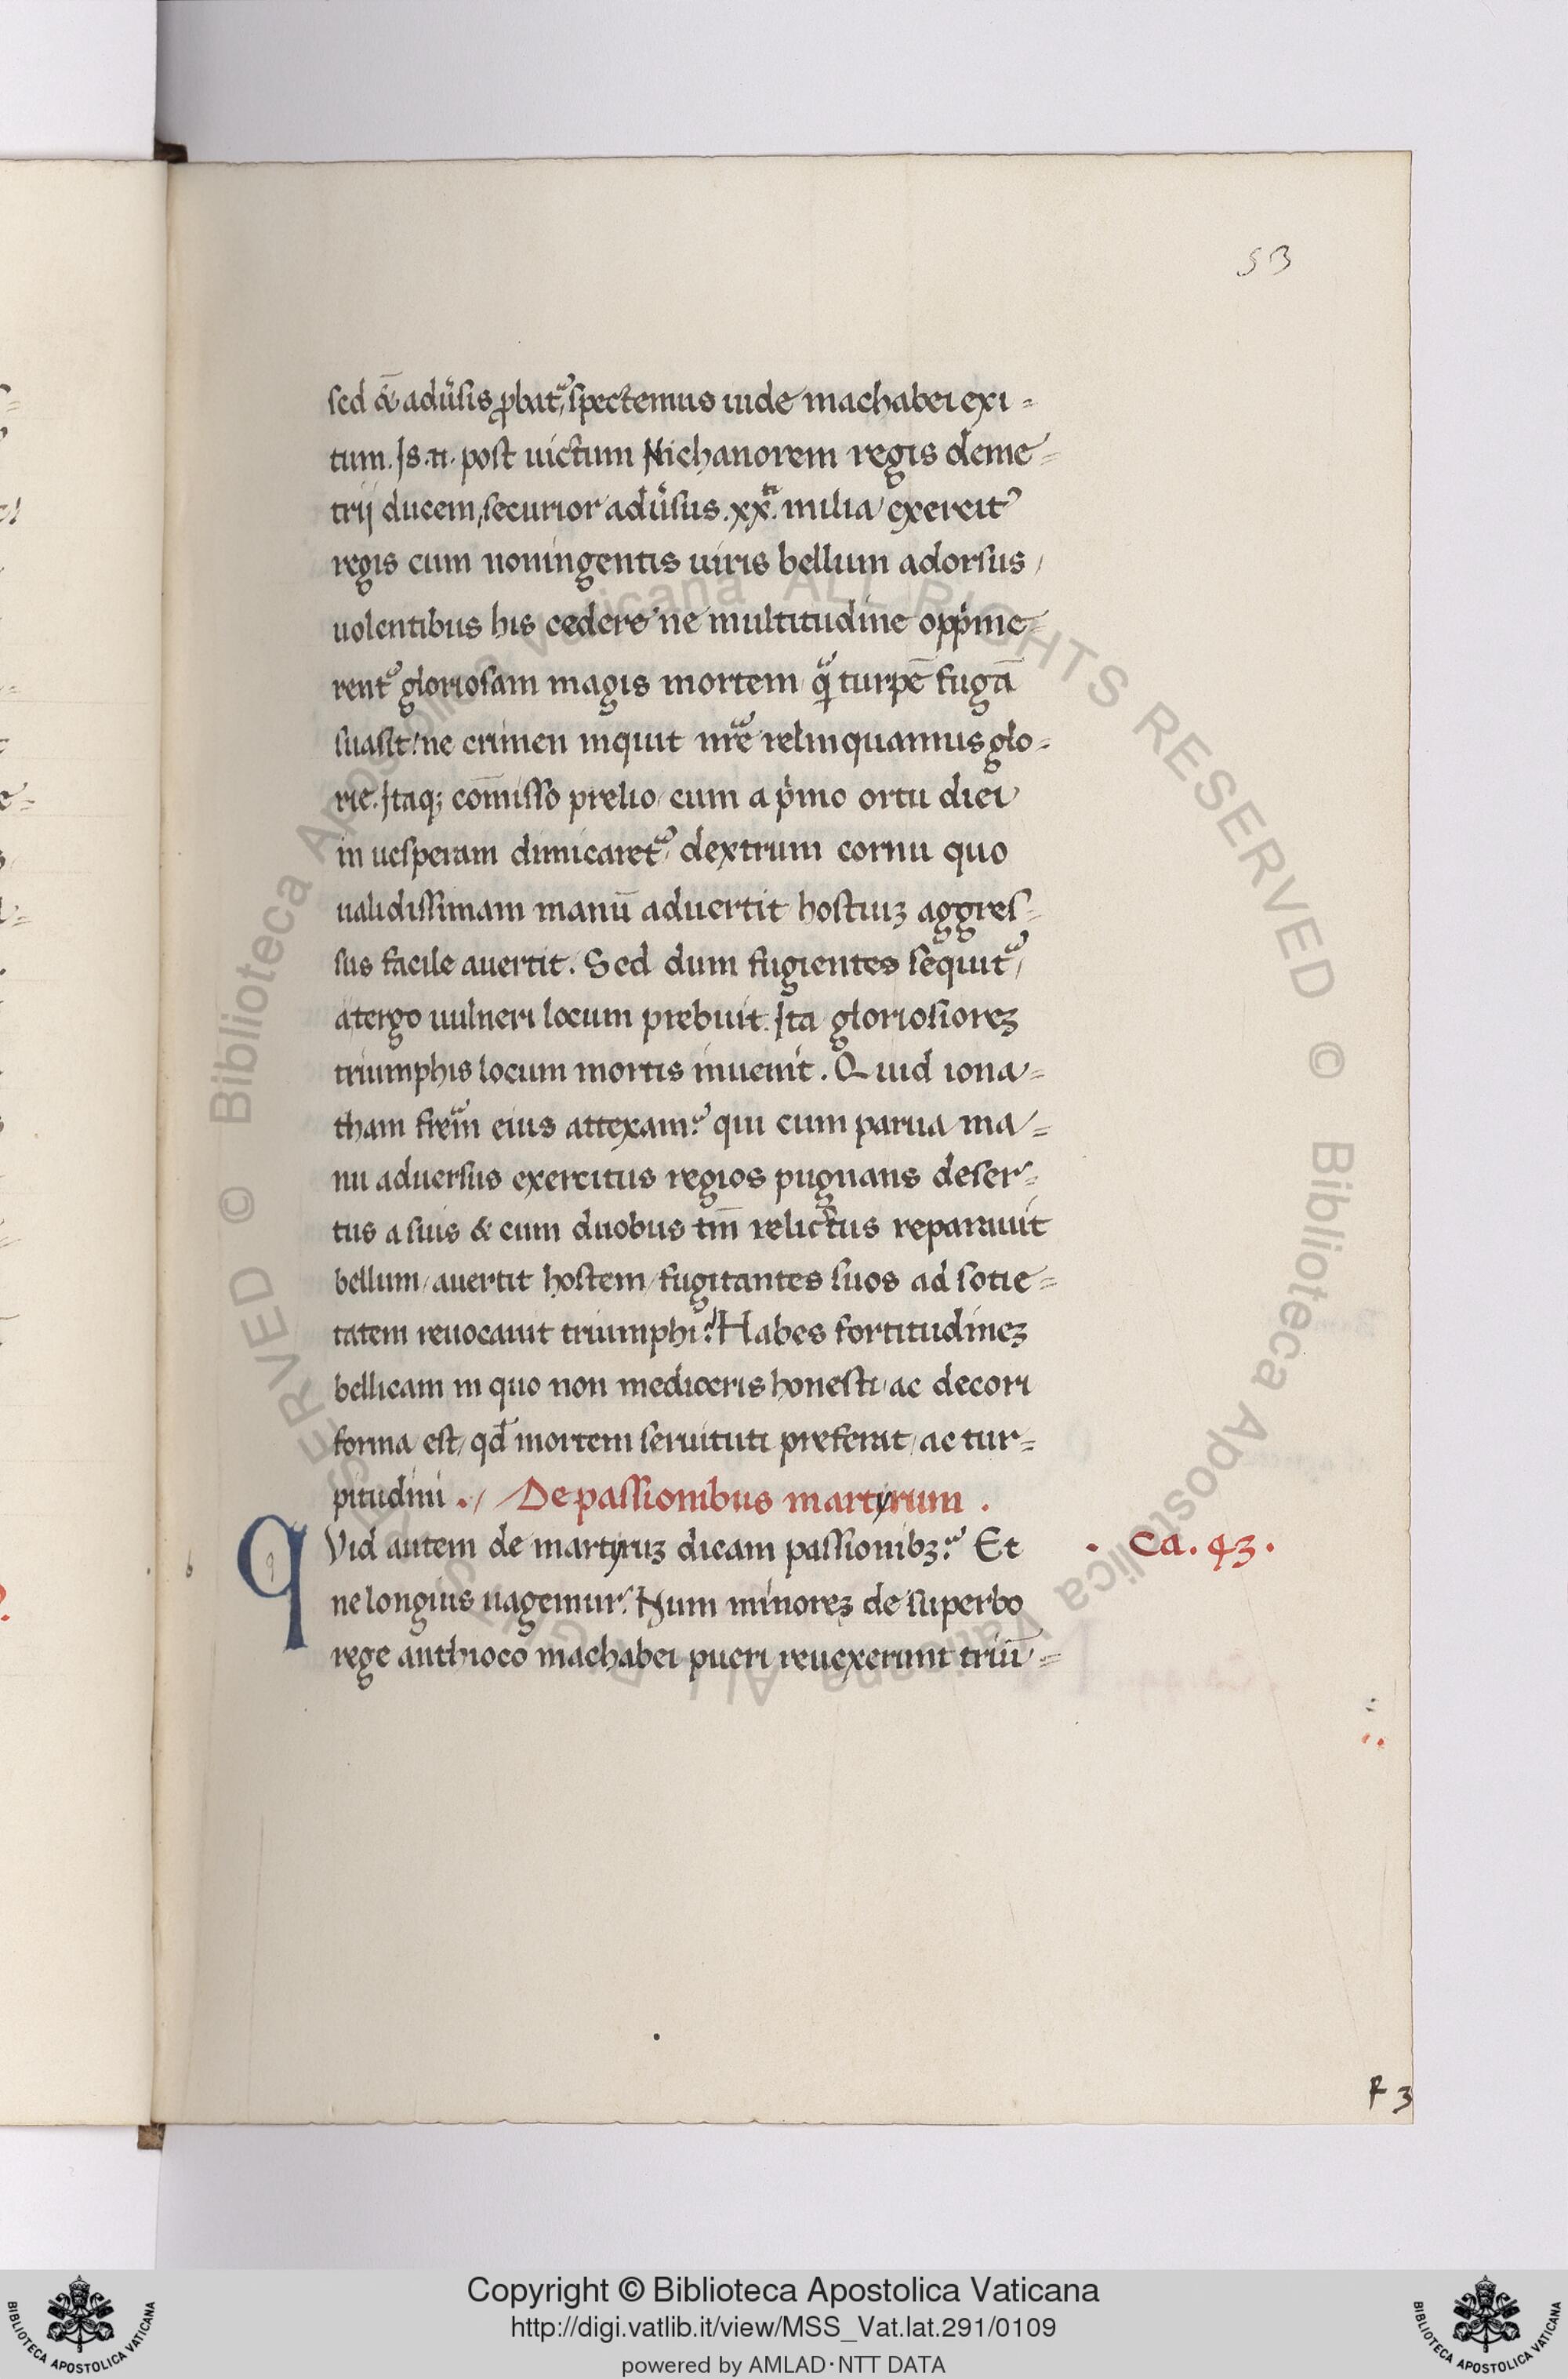 53
sed &̄ adūsis ꝓbat᷑, spectemus iude machabei exi=
tum. Is .n. post uictum Nichanorem regis deme=
trij ducem, securior adūsus .xx.ti milia exercit᷒
regis cum noningentis uiris bellum adorsus /
uolentibus his cedere ne multitudine opp̍me=
rent᷑ gloriosam magis mortem qᷓ turpē fugā
suasit: ne crimen inquit nr̄e relinquamus glo=
rie. Itaq; com̄isso prelio / cum a p̍mo ortu diei
in uesperam dimicaret᷑ / dextrum cornu quo
ualidissimam manū aduertit hostiuꝫ aggres=
sus facile auertit. Sed dum fugientes sequit᷑ /
atergo uulneri locum prebuit. Ita gloriosioreꝫ
triumphis locum mortis inuenit. Quid iona=
tham frēm eius attexam? qui cum parua ma=
nu aduersus exercitus regios pugnans deser=
tus a suis & cum duobus tm̄ relictus reparauit
bellum / auertit hostem / fugitantes suos ad sotie=
tatem reuocauit triumphi? Habes fortitudineꝫ
bellicam in quo non mediocris honesti / ac decori
forma est / qđ mortem seruituti preferat / ac tur=
pitudini . / De passionibus martyrum .
qVid autem de martyruꝫ dicam passionibꝫ? Et · Ca. 43.
ne longius uagemur. Num minoreꝫ de superbo
rege anthioco machabei pueri reuexerunt triū=
F 3
Copyright © Biblioteca Apostolica Vaticana
http://digi.vatlib.it/view/MSS_Vat.lat.291/0109
powered by AMLAD·NTT DATA
BIBLIOTECA APOSTOLICA VATICANA
BIBLIOTECA APOSTOLICA VATICANA